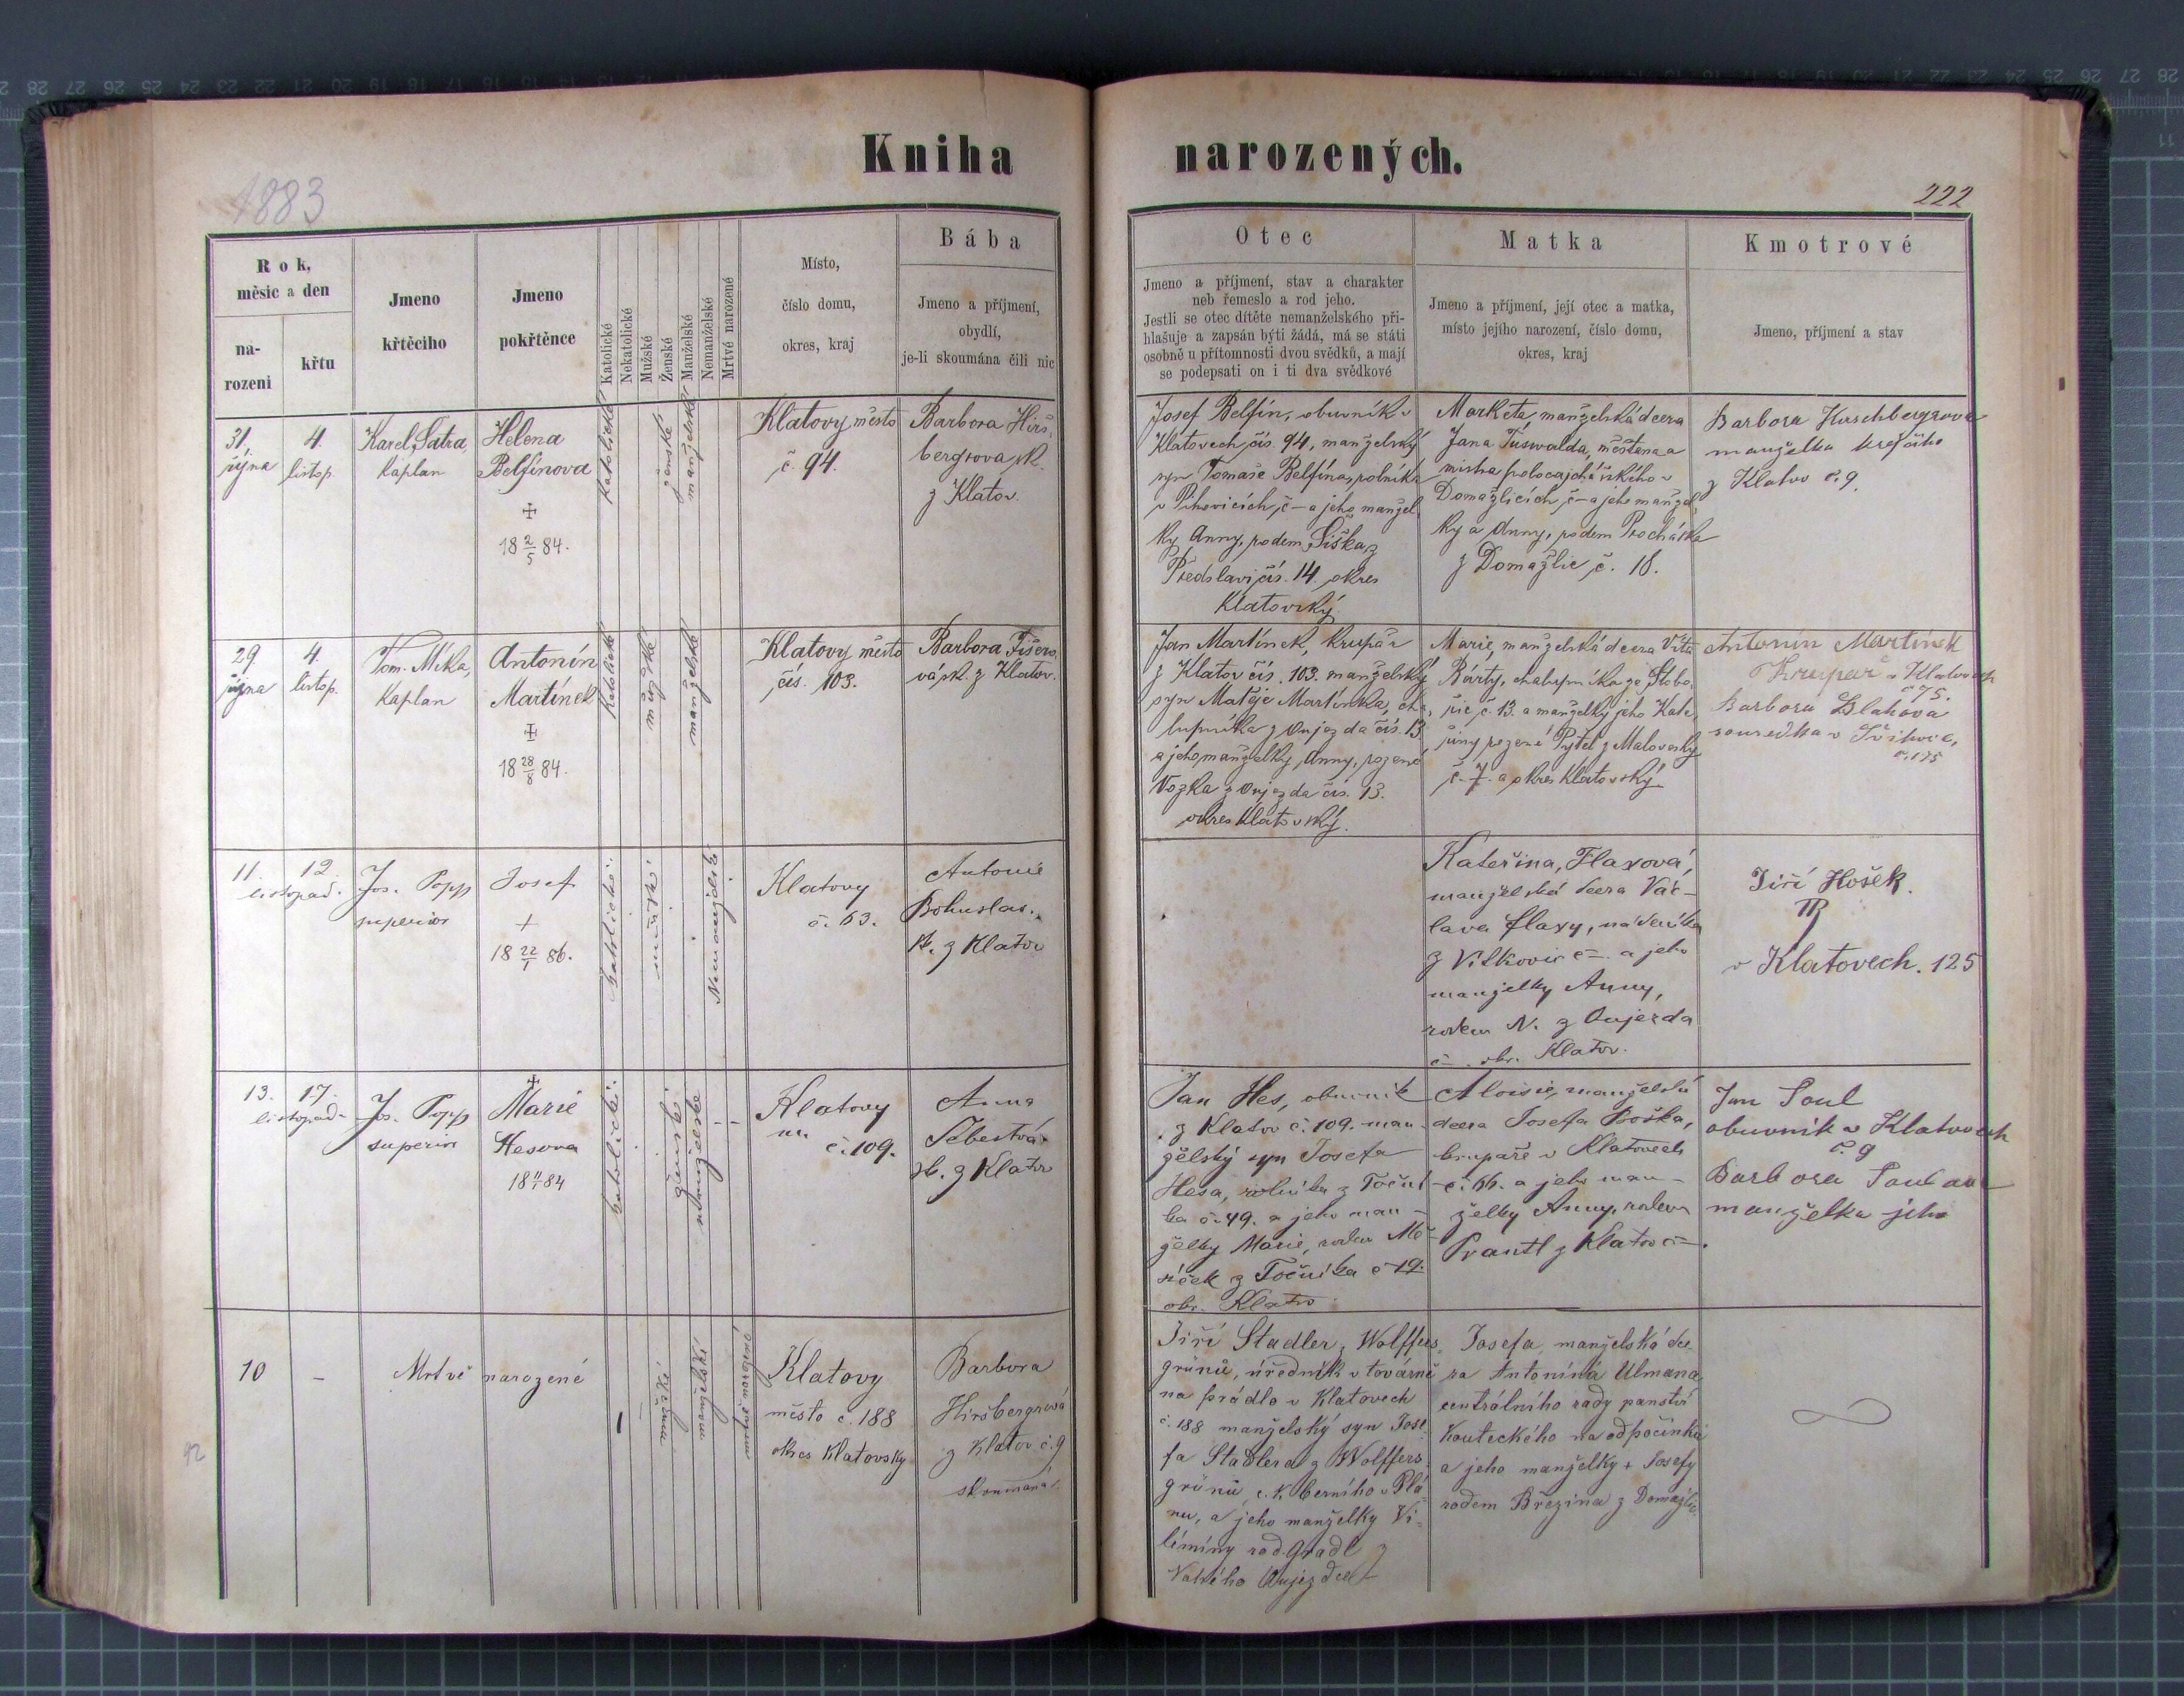 Kniha narozených.
1883
222
Rok,
měsic a den
na-
rozeni
křtu
Jmeno
křtěciho
Jmeno
pokřtěnce
Katolické
Nekatolické
Mužské
Ženské
Manželské
Nemanželské
Mrtvé narozené
Místo,
číslo domu,
okres, kraj
Bába
Jmeno a příjmení,
obydlí,
je-li skoumána čili nic
Otec
Jmeno a příjmení, stav a charakter
neb řemeslo a rod jeho.
Jestli se otec dítěte nemanželského při-
hlašuje a zapsán býti žádá, má se státi
osobně u přítomnosti dvou svědků, a mají
se podepsati on i ti dva svědkové
Matka
Jmeno a příjmení, její otec a matka,
místo jejího narození, číslo domu,
okres, kraj
Kmotrové
Jmeno, příjmení a stav
31.
října
4.
listop.
Karel Šatra,
Kaplan
Helena
Belfínova
18 2/5 84.
Katolické
ženské
manželské
Klatovy město
č. 94.
Barbora Hirš-
bergrova, zk.
z Klatov.
Josef Belfín, obuvník v
Klatovech čís. 94, manželský
syn Tomaše Belfína, rolníka
v č – a jeho manžel-
ky Anny, rodem Šiška, z
Předslavi čís. 14. okres
Klatovský.
Marketa, manželská dcera
Jana měšťana a
mistra v
Domažlicích, č – a jeho manžel-
ky a Anny, rodem Procházka
z Domažlic, č. 18.
Barbora Hirschbergrova
manželka krejčího
z Klatov č. 9.
29
října
4.
listop.
Tom. Mika,
Kaplan
Antonín
Martínek
18 28/8 84.
Katolické
mužské
manželské
Klatovy město
čís. 103.
Barbora Fišero-
vá, zk. z Klatov.
Jan Martínek, krupař
z Klatov čís. 103. manželský
syn Matěje Martínka, cha-
lupníka z Oujezda čís. 13
a jeho manželky, Anny, rozené
Vozka z Oujezda čís. 13.
okres Klatovský.
Marie, manželská dcera Víta
Bárty, chalupníka ze Slobo-
č. 13. a manželky jeho Kate-
řiny rozené Pytel z Malovesky
č. 7. a okres Klatovský
Antonín Martínek
Krupař v Klatovech
č 75.
Barbora Blahova
sousedka v Švihově,
č. 175
11.
12.
listopad.
Jos. Popp
superior
Josef
18 22/1 86.
katolické
mužské
Nemanželské
Klatovy
č. 63.
Antonie
Bohuslav.,
zk. z Klatov
Kateřina, Flaxová,
manželská dcera Vác-
lava Flaxy, nádeníka
z Vítkovic č – a jeho
manželky Anny,
rodem N. z Oujezda
č – okr. Klatov.
Jiří Hošek.
v Klatovech. 125
13.
17.
listopad.
Jos. Popp
superior
Marie
Hesova
18 11/1 84
katolické
ženské
manželské
Klatovy
č. 109.
Anna
Šebestvá
zk. z Klatov
Jan Hes, obuvník
z Klatov č. 109. man-
želský syn Josefa
Hesa, rolníka z Toční-
ka č. 49. a jeho man-
želky Marie, rodem Mě-
síček z Točníka č 19.
okr. Klatov.
Aloisie, manželská
dcera Josefa Boška,
krupaře v Klatovech
č. 66. a jeho man-
želky Anny, rodem
Prantl z Klatov č –.
Jan Soul
obuvník v Klatovech
č. 9
Barbora Soulova
manželka jeho
10
–
Mrtvě narozené
ženské
manželské
mrtvě narozené
Klatovy
město č. 188
okres Klatovsky
Barbora
Hiršbergrová
z Klatov č. 9
skoumaná.
Jiří Stadler z Wolffers-
grünů, úředník v továrně
na prádlo v Klatovech
č. 188 manželský syn Jose-
fa Stadlera z Wolffers-
grünů, c. k. berního v Plá-
nu, a jeho manželky Vi-
lémíny rod. Gradl z
Nového Oujezdce
Josefa, manželská dce-
ra Antonína Ulmana
centrálního rady panství
Kouteckého na odpočinku
a jeho manželky + Josefy
rodem Březina z Domažlic.
92